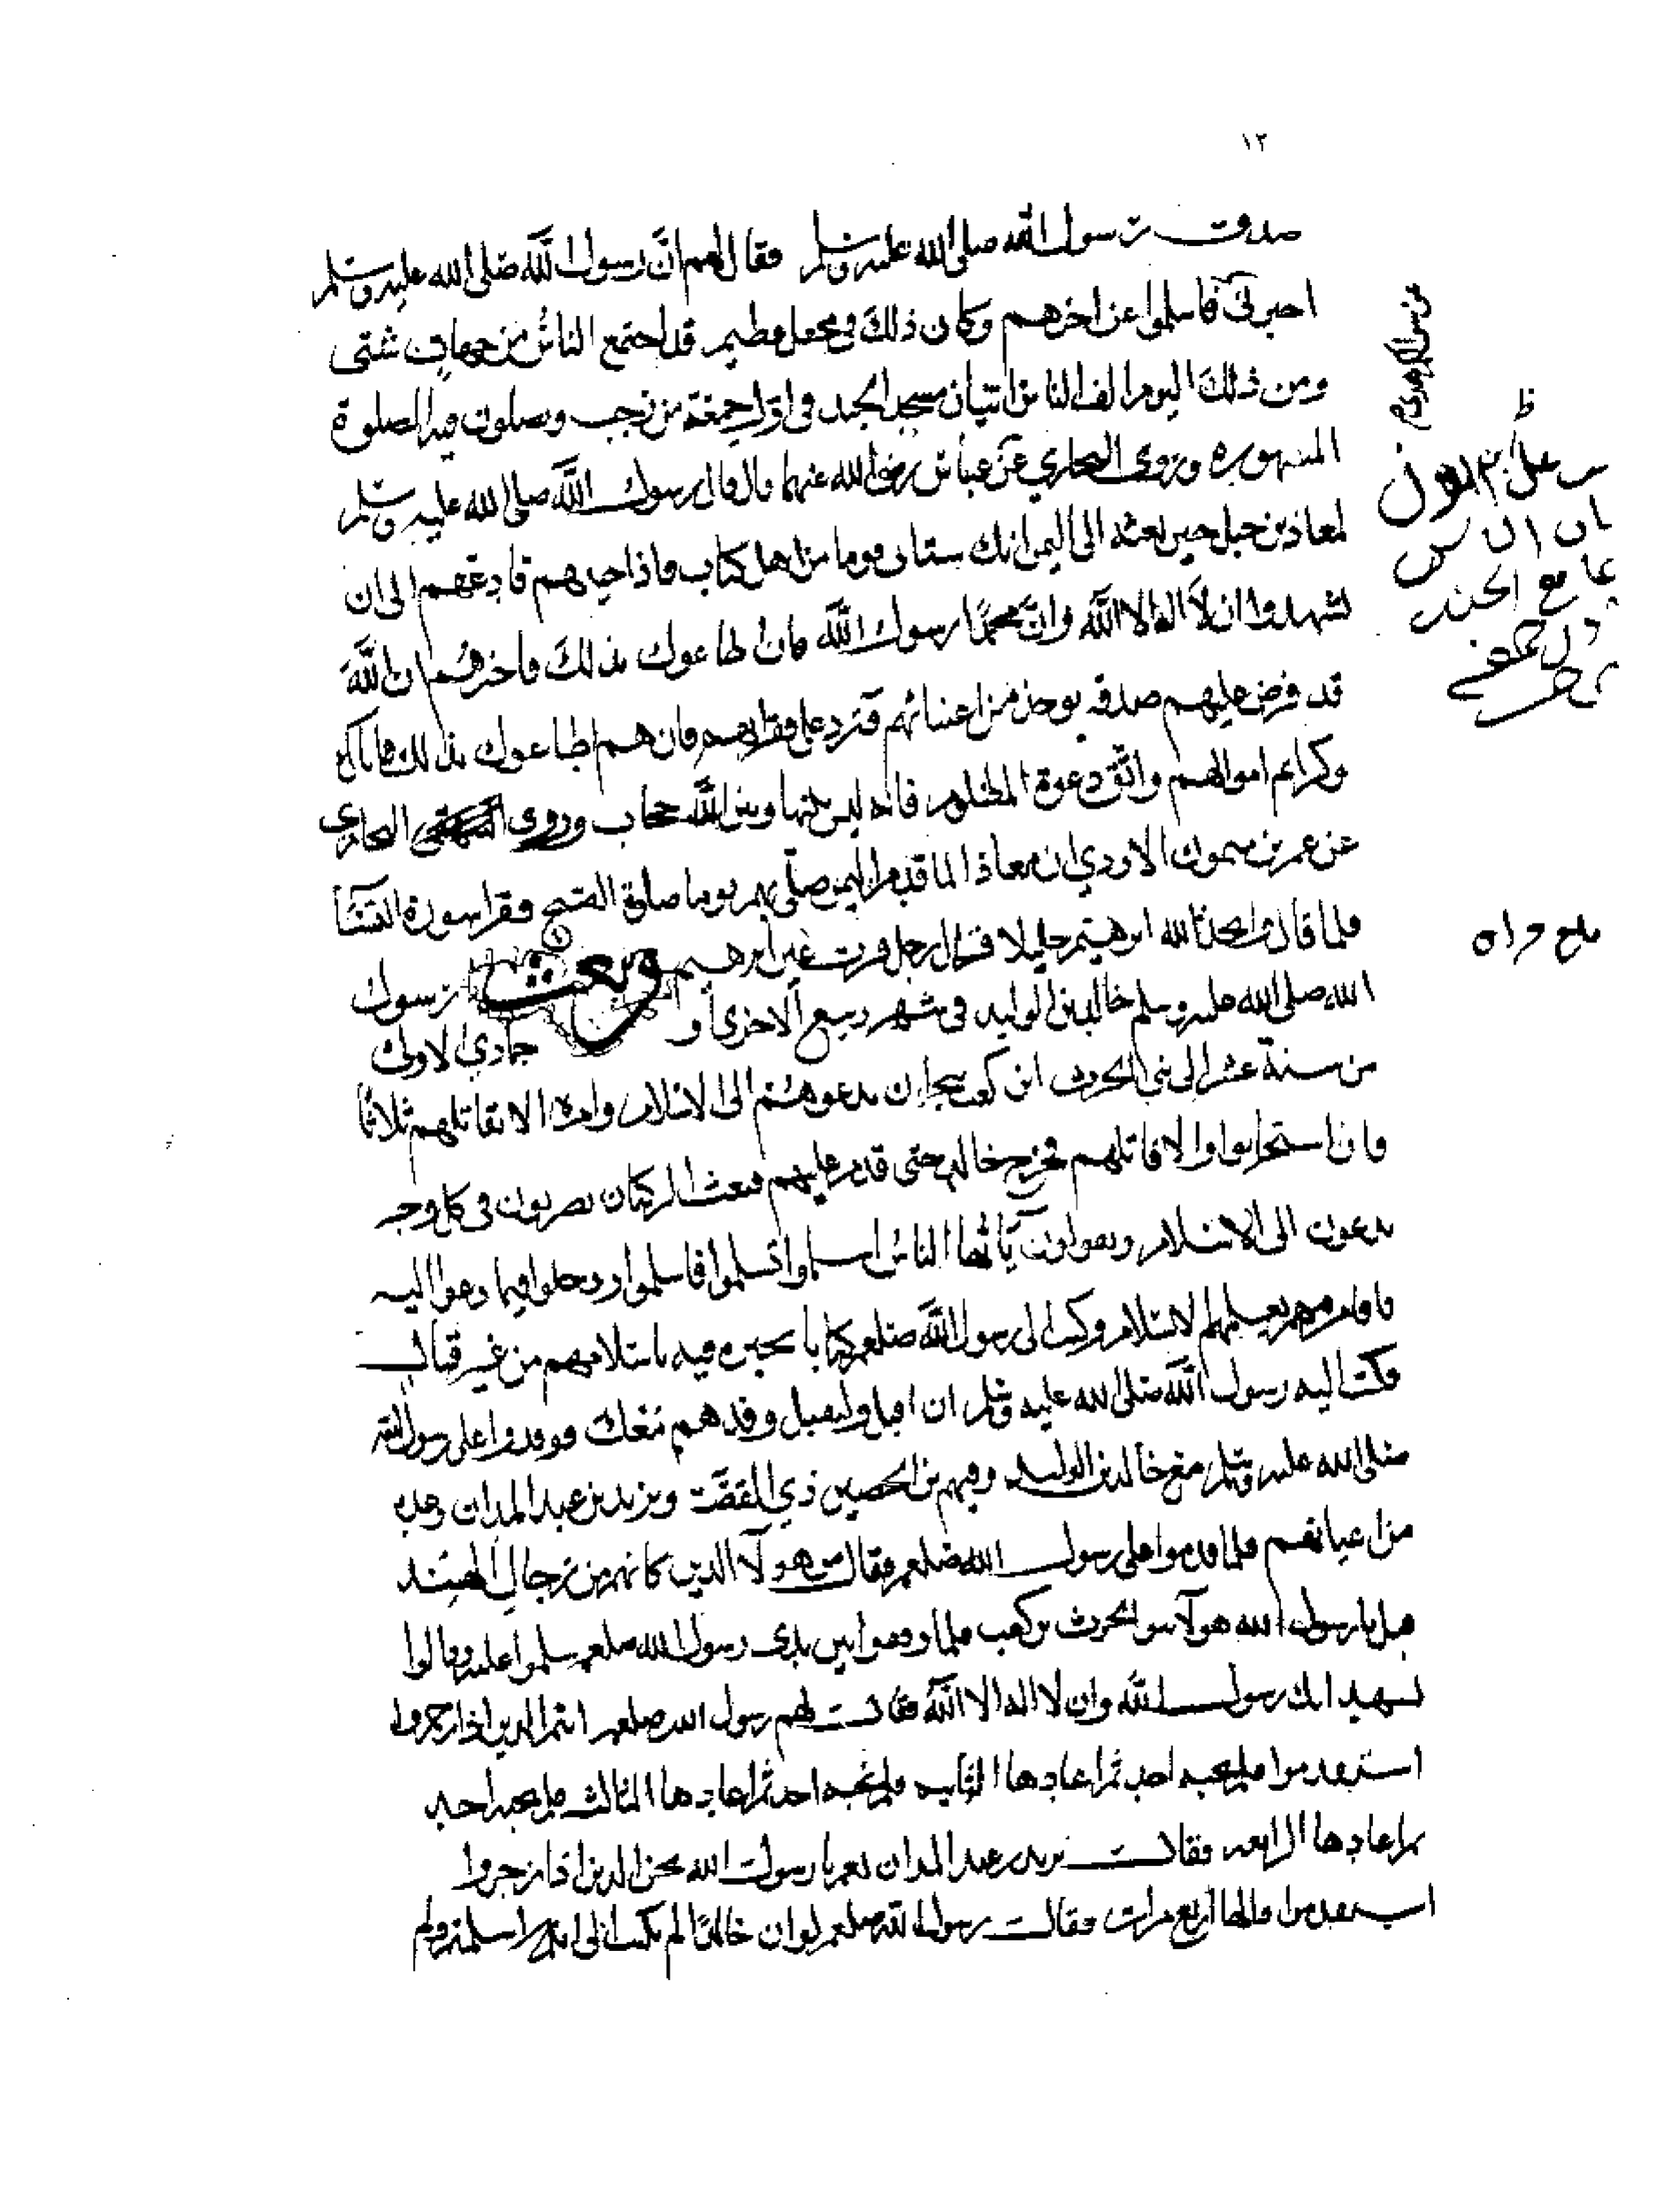 ١٢
صدق رسول الله صلى الله عليه وسلم فقال لهم ان رسول الله صلى الله عليه وسلم
اخبرني فاسلموا عن اخرهم وكان ذلك في محفل عظيم قد اجتمع الناس من جهات شتى
ومن ذلك اليوم الف الناس اتيان مسجد الجند في اول جمعة من رجب ويصلون فيه الصلوة
المشهوره وروى البخاري عن عباس رضي الله عنهما قال قال رسول الله صلى الله عليه وسلم
لمعاذ بن جبل حين بعثه الى اليمن انك ستاتي قوما من اهل كتاب فاذا جيتهم فادعهم الى ان
تشهدوا ان لا اله الا الله وان محمدا رسول الله فان اطاعوك بذلك فاخبرهم ان الله
قد فرض عليهم صدقه توخذ من اغنيائهم فترد على فقرايهم فان هم اطاعوك بذلك فاياك
وكرايم اموالهم واتق دعوة المظلوم فانه ليس بينها وبين الله حجاب وروى البخاري
عن عمر بن ميمون الاودي ان معاذا لما قدم اليمن صلى بهم يوما صلوة الصبح فقرا سورة النسا
فلما قال واتخذ الله ابرهيم خليلا قال رجل قرت عين ابرهيم وبعث رسول
الله صلى الله عليه وسلم خالد بن الوليد في شهر ربيع الاخرى او جمادى الاولى
من سنة عشر الى بني الحرث ابن كعب بنجران يدعوهم الى الاسلام وامره الا يقاتلهم ثلاثا
فان استجابوا والا قاتلهم فخرج خالد حتى قدم عليهم فبعث الركبان يضربون في كل وجه
يدعون الى الاسلام ويقولون يا ايها الناس اسلموا تسلموا فاسلموا ودخلوا فيما دعوا اليه
فاقام فيهم يعلمهم الاسلام وكتب الى رسول الله صلعم كتابا يخبره فيه باسلامهم من غير قتال
فكتب اليه رسول الله صلى الله عليه وسلم ان اقبل وليقبل وفدهم معك فوفدوا على رسول الله
صلى الله عليه وسلم مع خالد بن الوليد وفيهم بن الحصين ذي الغصة ويزيد بن عبد المدان وعده
من اعيانهم فلما قدموا على رسول الله صلعم فقال من هولا الذين كانهم من رجال الهند
قيل يا رسول الله هولا بنو الحرث بن كعب فلما وقفوا بين يدي رسول الله صلعم سلموا عليه وقالوا
نشهد انك رسول الله وان لا اله الا الله فقال لهم رسول الله صلعم انتم الذين اذا زجروا
استقدموا فلم يجبه احد ثم اعادها الثانيه فلم يجبه احد ثم اعادها الثالث فلم يجبه احد
ثم اعادها الرابعه فقال يزيد بن عبد المدان نعم يا رسول الله نحن الذين اذا زجروا
استقدموا قالها اربع مرات فقال رسول الله صلعم لو ان خالدا لم يكتب الي انكم اسلمتم ولم
جامع الجند
بلغ قراه